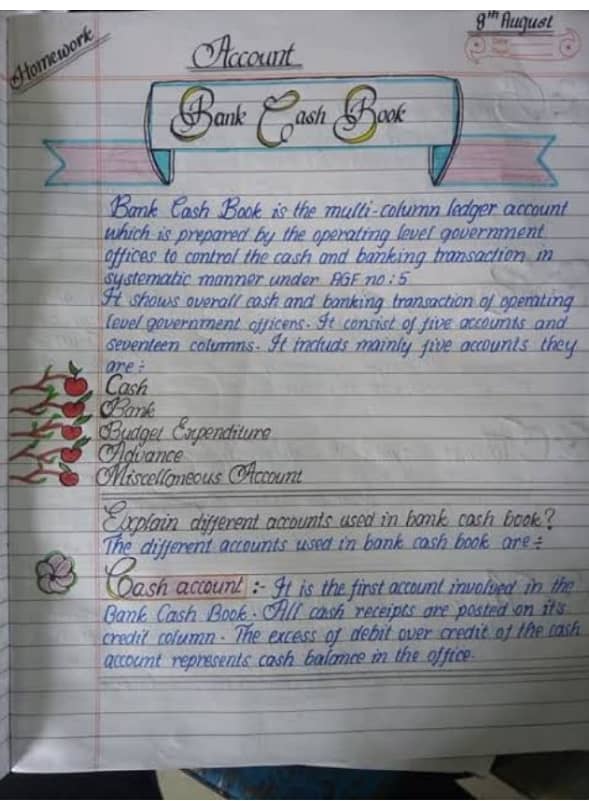 Homework
8th August
Account
Bank Cash Book
Bank Cash Book is the multi-column ledger account
which is prepared by the operating level government
offices to control the cash and banking transaction in
systematic manner under AGF no : 5
It shows overall cash and banking transaction of operating
level government officens. It consist of five accounts and
seventeen columns. It includs mainly five accounts they
are :
Cash
Bank
Budget Expenditure
Advance
Miscellaneous Account
Explain different accounts used in bank cash book?
The different accounts used in bank cash book are :
Cash account :- It is the first account involved in the
Bank Cash Book. All cash receipts are posted on it's
credit column. The excess of debit over credit of the cash
account represents cash balance in the office.